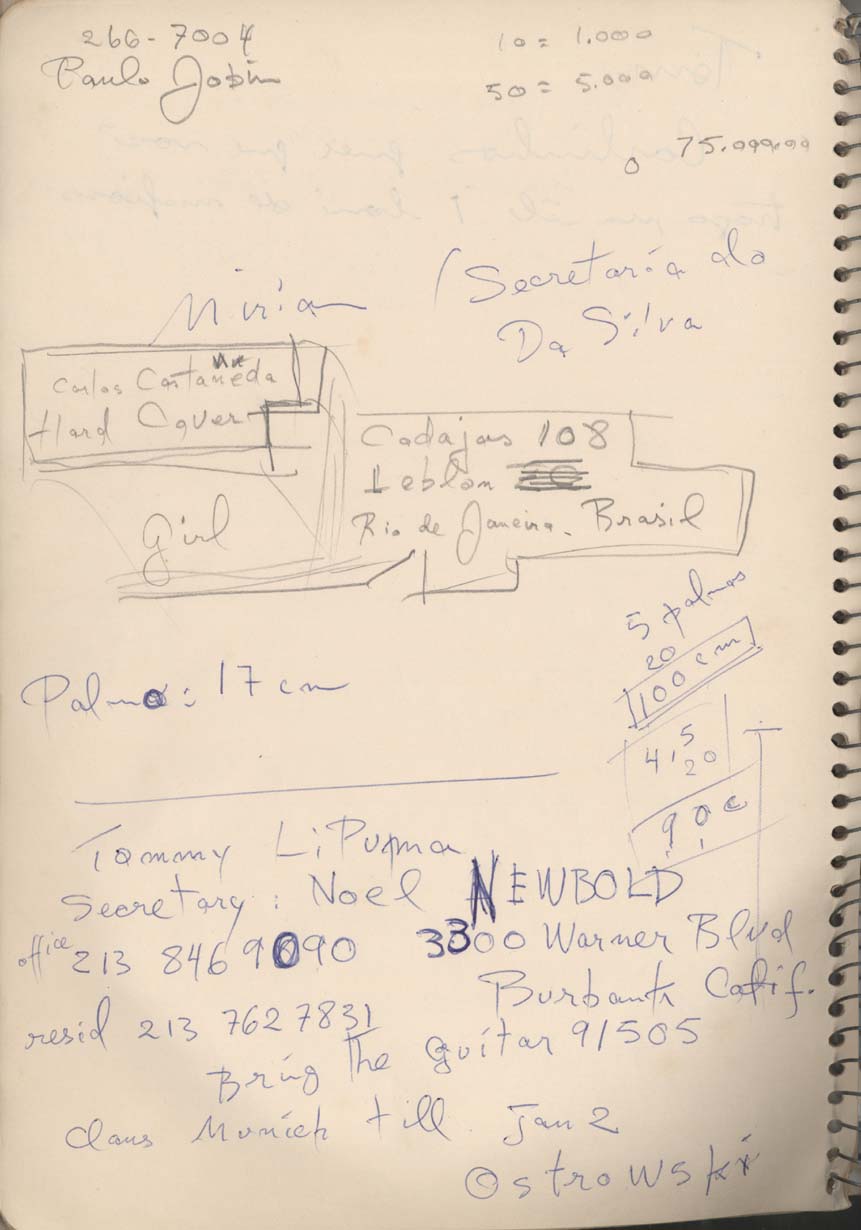 266-7004
Paulo Jobim
10 = 1.000
50 = 5.000
0 75.000.00
Mirian
(Secretaria do
Da Silva
Carlos Castañeda
Hard Cover
Codajas 108
Leblon
Rio de Janeiro. Brasil
girl
5 palmos
20
100 cm
Palmo: 17 cm
5
4 1 20
90
Tommy LiPuma
Secretary: Noel NEWBOLD
office 213 846 9090 3300 Warner Blvd
Burbank Calif.
resid 213 762 7831 91505
Bring The guitar
Claus Munich till Jan 2
Ostrowski